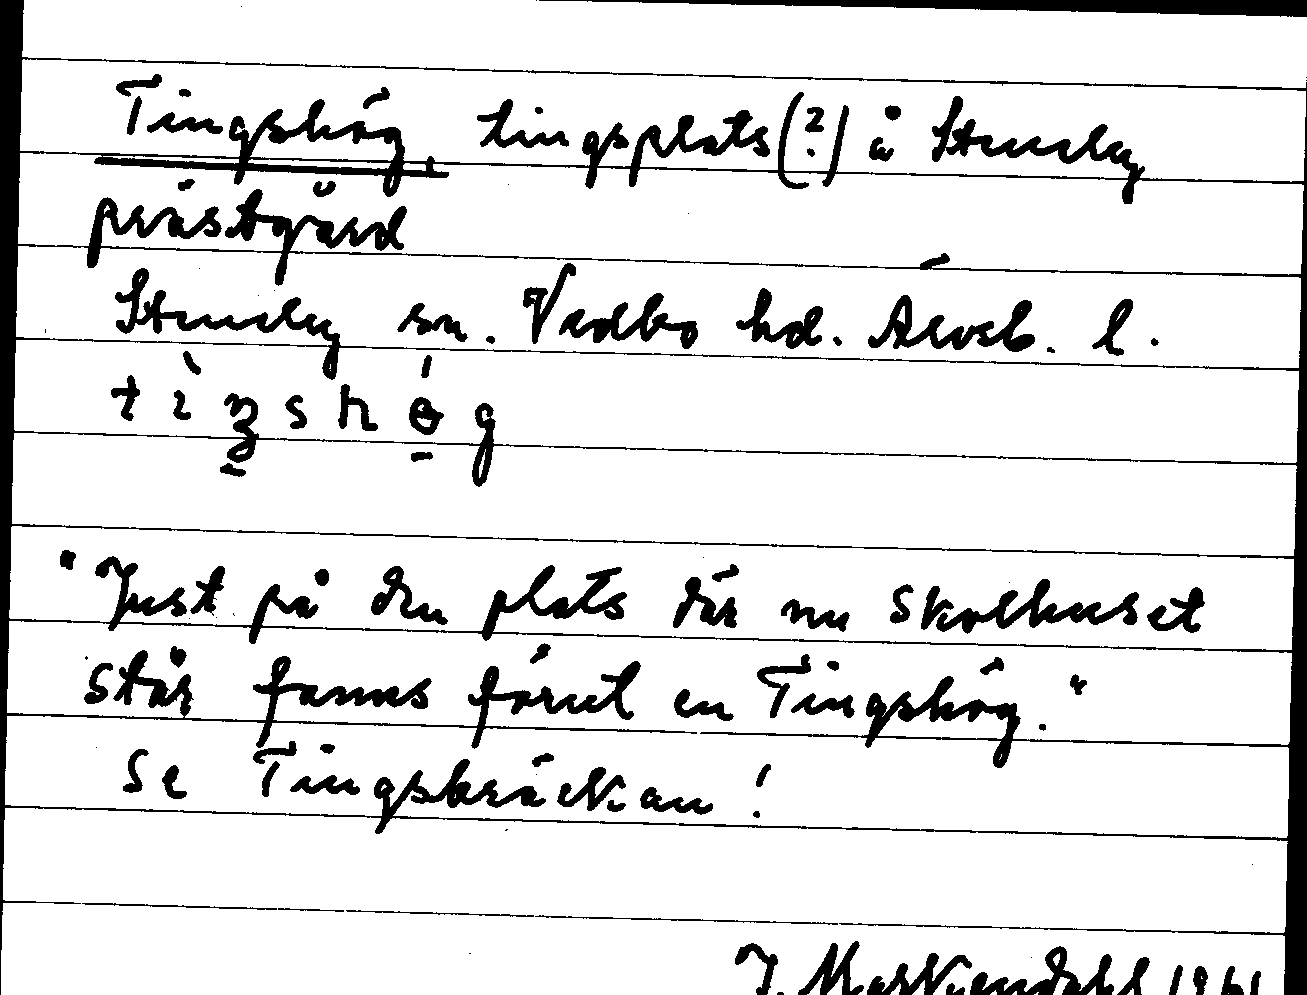 Tingshög, tingsplats(?) å Steneby
prästgård
Steneby sn. Vedbo hd. Älvsb. l.
"Just på den plats där nu skolhuset
står fanns förut en Tingshög."
Se Tingsbräckan!
J.